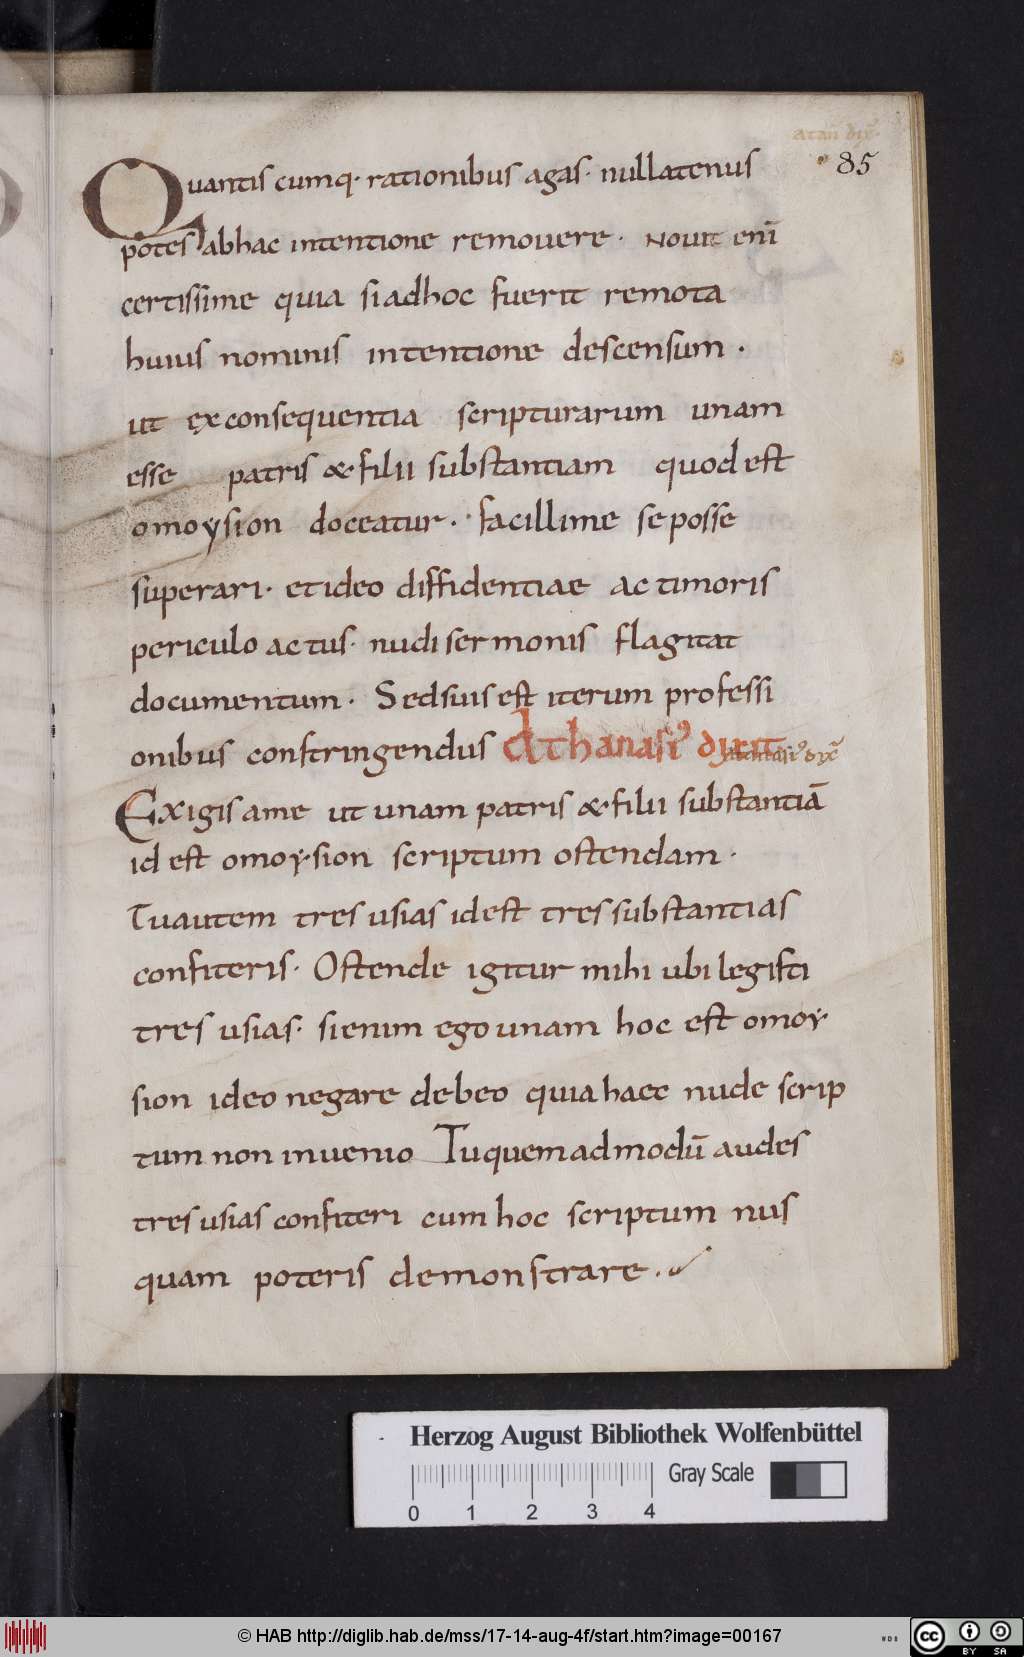 atan dix̄
85
Quantis cumq· rationibus agas· nullatenus
potes abhac intentione remouere· Nouit enī
certissime quia siadhoc fuerit remota
huius nominis intentione descensum·
ut ex consequentia scripturarum unam
esse patris & filii substantiam quod est
omoysion doceatur· facillime se posse
superari· et ideo diffidentiae ac timoris
periculo actus· nudi sermonis flagitat
documentum· Sed suis est iterum professi
onibus constringendus Athanasi' dixit
Exigis ame ut unam patris & filii substantiā
id est omoysion scriptum ostendam·
Tu autem tres usias id est tres substantias
confiteris· Ostende igitur mihi ubi legisti
tres usias· si enim ego unam hoc est omoy
sion ideo negare debeo quia haec nude scrip
tum non inuenio Tu quemadmodū audes
tres usias confiteri cum hoc scriptum nus
quam poteris demonstrare·
Herzog August Bibliothek Wolfenbüttel
Gray Scale
0 1 2 3 4
© HAB http://diglib.hab.de/mss/17-14-aug-4f/start.htm?image=00167
cc BY SA